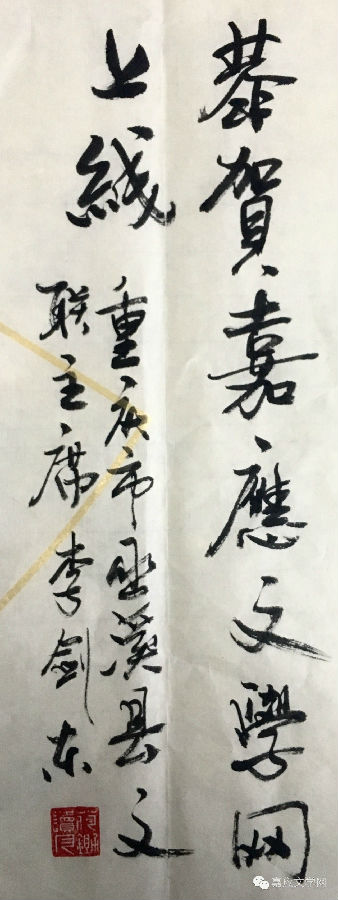 恭賀嘉應文學网
上綫
重庆市巫溪县文
联主席李剑东
嘉应文学网